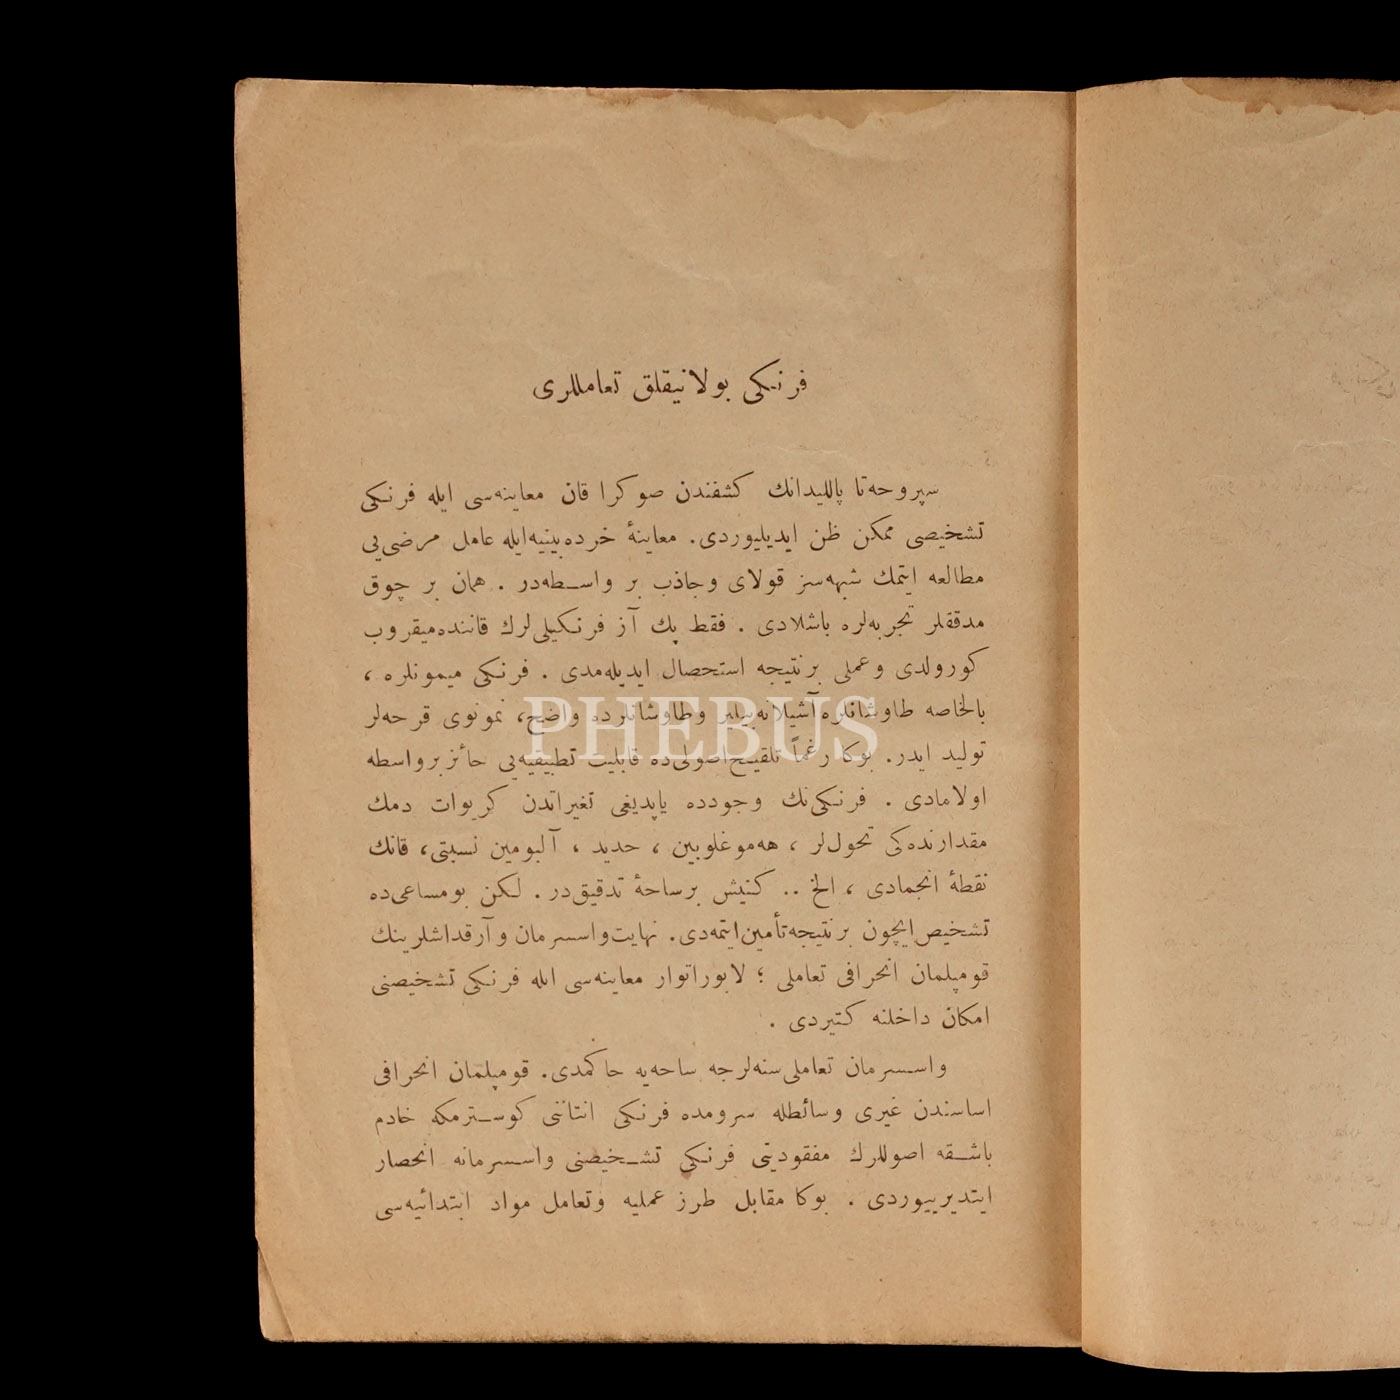 فرنكی بولانیقلق تعامللری
سپروحه‌تا پاللیدانك كشفندن صوكرا قان معاینه‌سی ایله فرنكی
تشخیصی ممكن ظن ایدیلیوردی. معاینۀ خرده‌بینیه‌ایله عامل مرضی‌یی
مطالعه ایتمك شبهه‌سز قولای وجاذب بر واسـطه‌در . همان بر چوق
مدققلر تجربه‌لره باشلادی . فقط پك آز فرنكیلی‌لرك قاننده‌میقروب
كورولدی وعملی برنتیجه استحصال ایدیله‌مدی . فرنكی میمونلره ،
بالخاصه طاوشانلره آشیلانه‌بیلیر وطاوشانلرده واضح، نمونوی قرحه‌لر
تولید ایدر. بوكا رغماً تلقیح‌اصولی‌ده قابلیت تطبیقیه‌یی حائز برواسطه
اولامادی . فرنكی‌نك وجودده یاپدیغی تغیراتدن كریوات دمك
مقدارنده‌كی تحول‌لر ، هه‌موغلوبین ، حدید ، آلبومین نسبتی، قانك
نقطۀ انجمادی ، الخ .. كنیش برساحۀ تدقیق‌در . لكن بومساعی‌ده
تشخیص‌ایچون برنتیجه‌تأمین‌ایتمه‌دی. نهایت‌واسسرمان و آرقداشلرینك
قومپلمان انحرافی تعاملی ؛ لابوراتوار معاینه‌سی ایله فرنكی تشخیصنی
امكان داخلنه كتیردی .
واسسرمان تعاملی‌سنه‌لرجه ساحه‌یه حاكمدی. قومپلمان انحرافی
اساسندن غیری وسائطله سرومده فرنكی انتاننی كوسـترمكه خادم
باشـقه اصوللرك مفقودیتی فرنكی تشـخیصنی واسسرمانه انحصار
ایتدیرییوردی . بوكا مقابل طرز عملیه وتعامل مواد ابتدائیه‌سی
PHEBUS